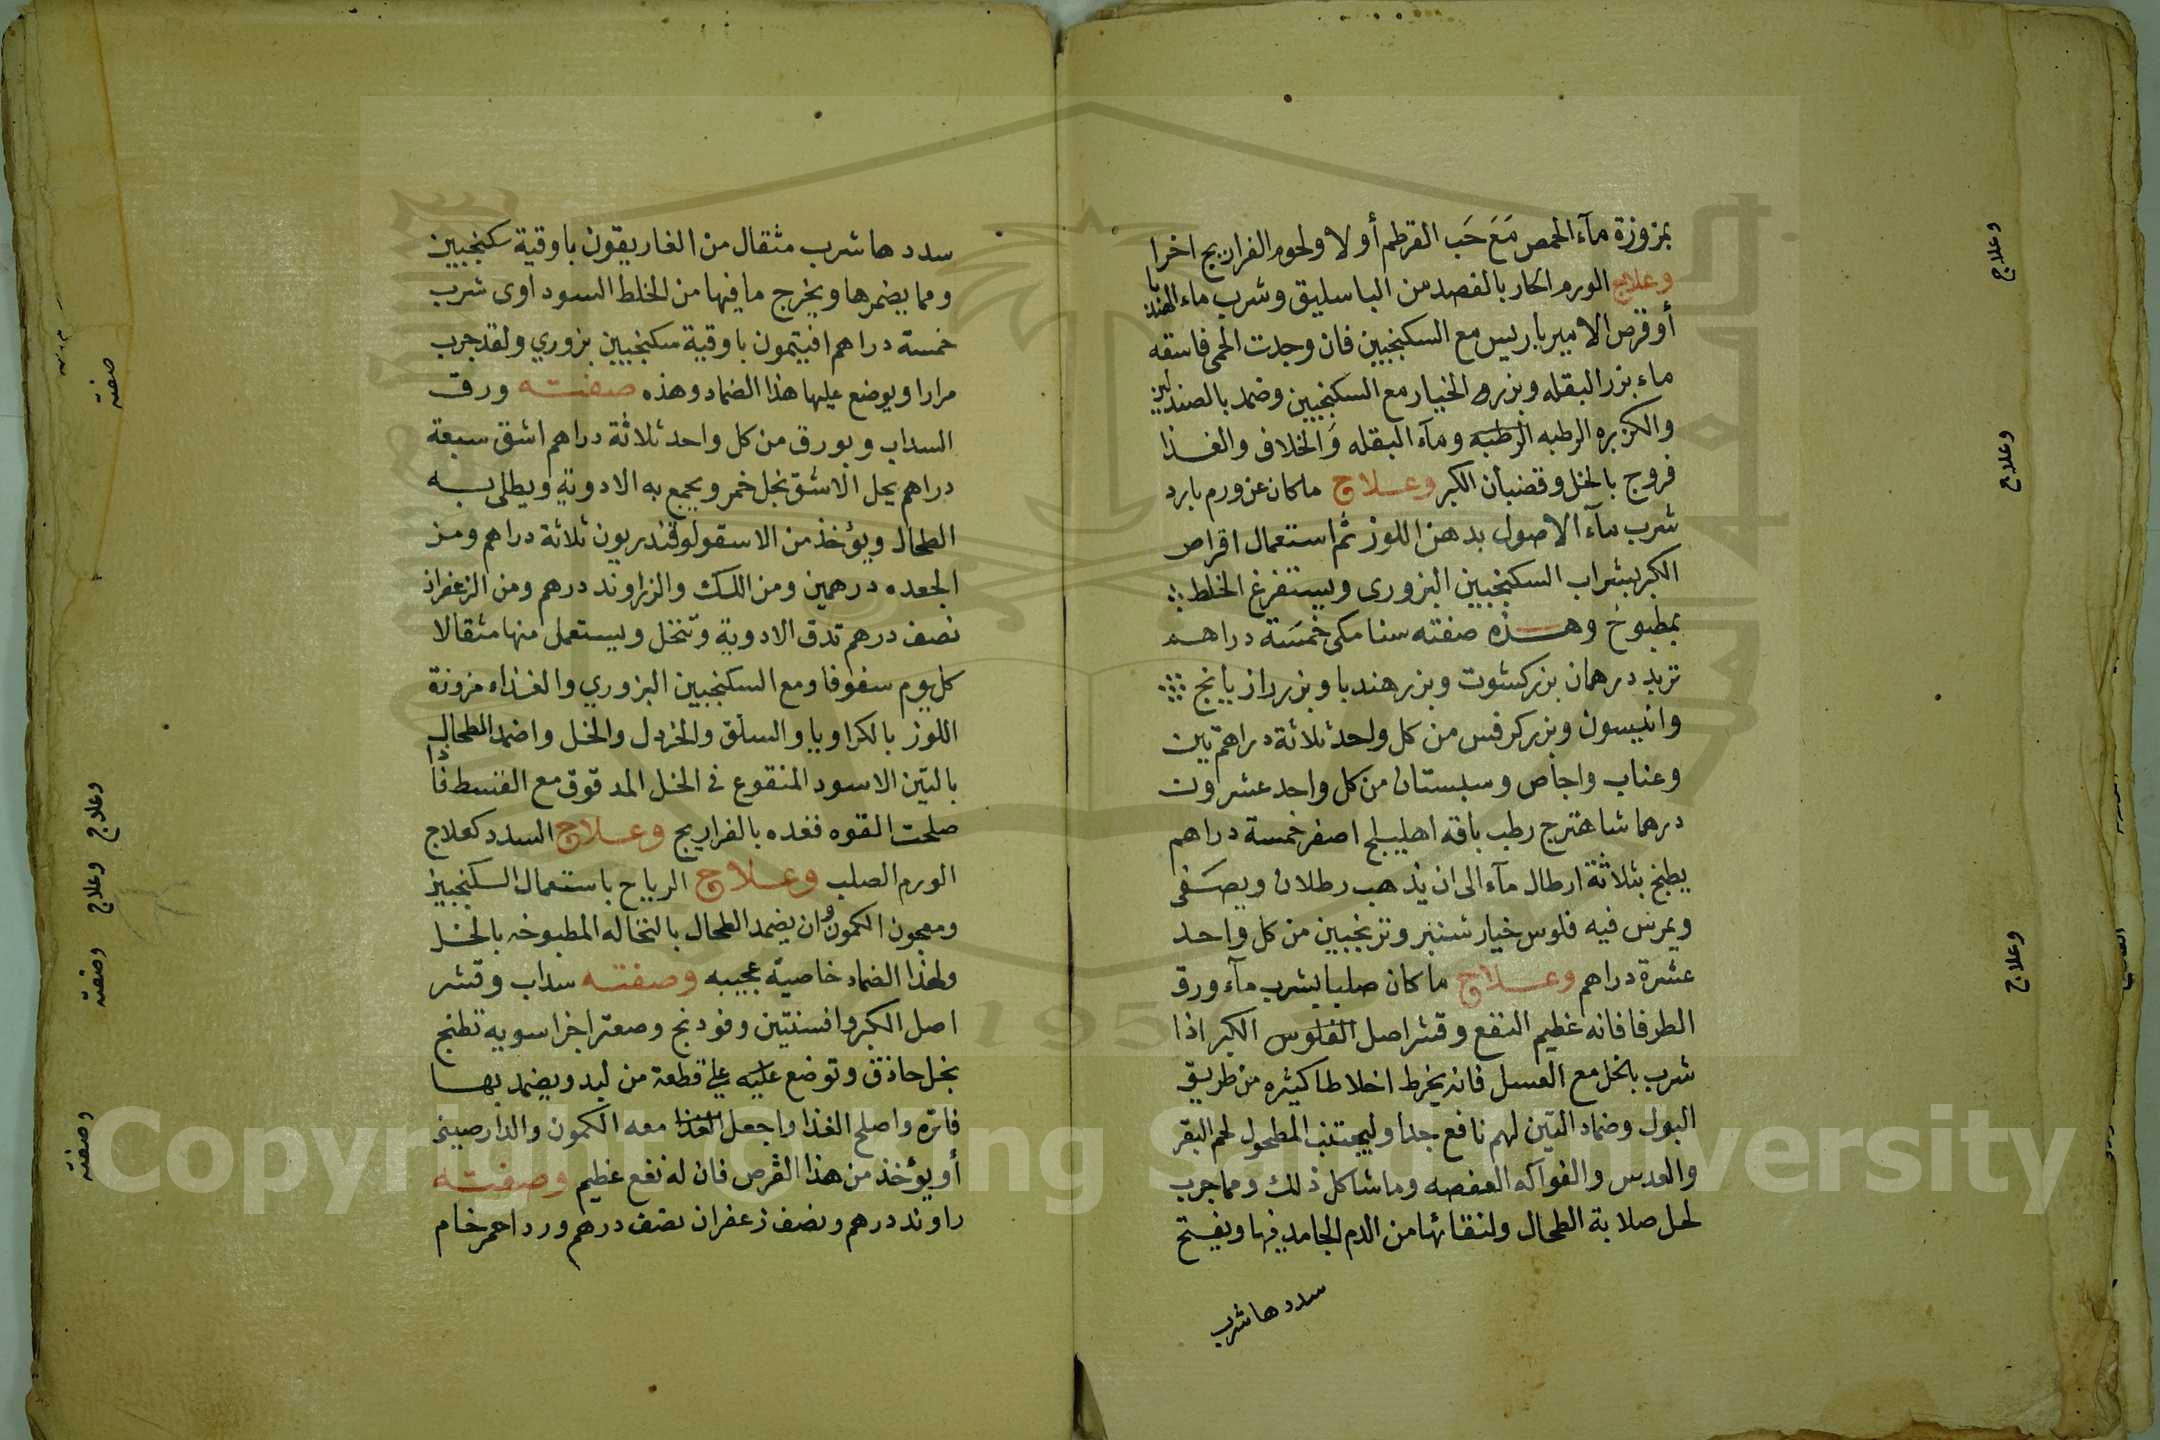 بمزوزة مآء الحمص مَعَ حَب القرطم أولا ولحوم الفراريج اخرا
وعلاج الورم الحار بالفصد من الباسليق وشرب ماء الهندبا
أو قرص الاميرباريس مع السكنجبين فان وجدت الحمى فاسقه
ماء بزر البقله وبزره الخيار مع السكنجبين وضمد بالصندلين
والكزبره الرطبه الرطبه ومآء البقله وَالخلاف والغــذا
فروج بالخل وقضبان الكبر وعــلاج ماكان عن ورم بارد
شرب مآء الاصول بدهن اللوز ثم استعمال اقراص
الكبر بشراب السكنجبين البزورى ويستفرغ الخلط
بمطبوخ وهــذه صفته سنا مكى خمسَة دراهــم
تربد درهمان بزر كشوت وبزر هندبا وبزر رازيانج
وانيسون وبزر كرفس من كل واحد ثلاثة دراهم تين
وعناب واجاص وسبستان من كل واحد عشرون
درهما شاهترج رطب باقه اهليلج اصفر خمسة دراهم
يطبخ بثلاثة ارطال مآء الى ان يذهب رطلان ويصَفى
ويمرس فيه فلوس خيار شنبر وترنجبين من كل واحد
عشرة دراهم وعــلاج ماكان صلبا يشرب مآء ورق
الطرفا فانه عظيم النفع وقشر اصل الفلوس الكبر اذا
شرب بالخل مع العسل فانه يخرط اخلاطا كثيره من طريق
البول وضماد التين لهم نافع جدا وليجتنب المطحول لحم البقر
والعدس والفواكه العفصه وماشاكل ذلك ومما جرب
لحل صلابة الطحال ولنقائها من الدم الجامد فيها ويفتح
سددها شرب
وعلاج
وعلاج
وعلاج
سددها شرب مثقال من الغاريقون باوقية سكنجبين
ومما يضمرها ويخرج مافيها من الخلط السوداوى شرب
خمسة دراهم افيتمون باوقية سكنجبين بزوري ولقد جرب
مرارا ويوضع عليها هذا الضماد وهذه صفتــه ورق
السداب وبورق من كل واحد ثلاثة دراهم اشق سبعة
دراهم يحل الاشق بخل خمر ويجمع به الادوية ويطلى بــه
الطحال ويؤخذ من الاسقولوقندريون ثلاثة دراهم ومن
الجعده درهمين ومن اللك والزراوند درهم ومن الزعفران
نصف درهم تدق الادوية وتنخل ويستعمل منها مثقالا
كل يوم سفوفا ومع السكنجبين البزوري والغذاء مزورة
اللوز بالكراويا والسلق والخردل والخل واضمد الطحال
بالتين الاسود المنقوع فى الخل المدقوق مع القسط فاذا
صلحت القوه فغده بالفراريج وعــلاج السدد كعلاج
الورم الصلب وعــلاج الرياح باستعمال السكنجبين
ومعجون الكمون وان يضمد الطحال بالنخاله المطبوخه بالخــل
ولهذا الضماد خاصية عجيبه وصفتــه سداب وقشر
اصل الكبر وافسنتين وفودنج وصعتر اجزا سويه تطبخ
بخل حاذق وتوضع عليه على قطعة من لبد ويضمد بهــا
فاتره واصلح الغذا واجعل الغذا معه الكمون والدارصينى
أو يؤخذ من هذا القرص فان له نفع عظيم وصفتــه
راوند درهم ونصف زعفران نصف درهم ورد احمر خام
صفته
وعلاج
وعلاج
وصفته
وصفته
Copyright © King Saud University
1957